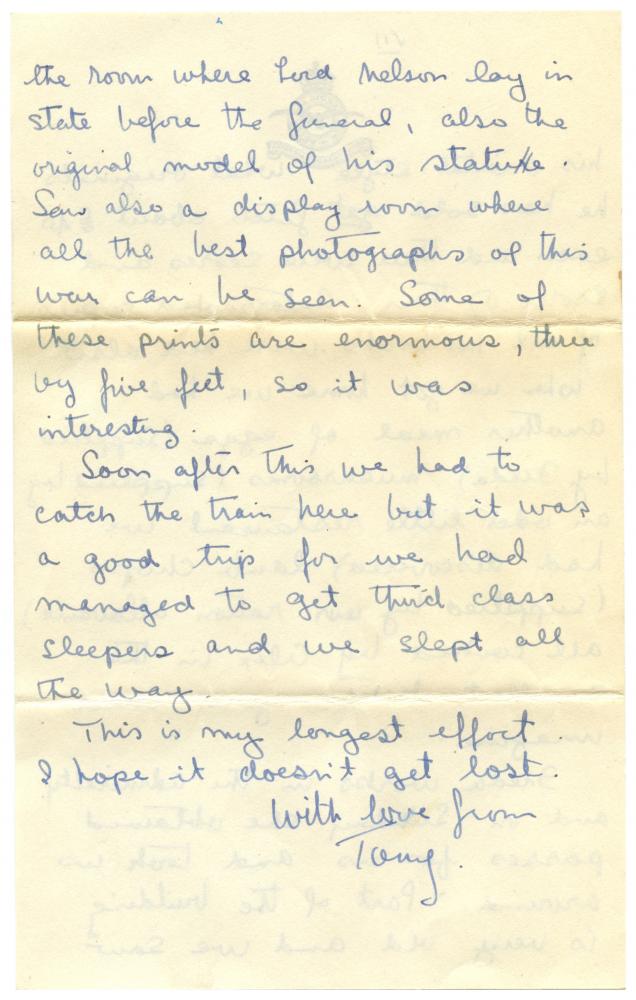 the room where Lord Nelson lay in
state before the funeral, also the
original model of his statue.
Saw also a display room where
all the best photographs of this
war can be seen. Some of
these prints are enormous, three
by five feet, so it was
interesting.
Soon after this we had to
catch the train here but it was
a good trip for we had
managed to get third class
sleepers and we slept all
the way.
This is my longest effort.
I hope it doesn't get lost.
With love from
Tony.